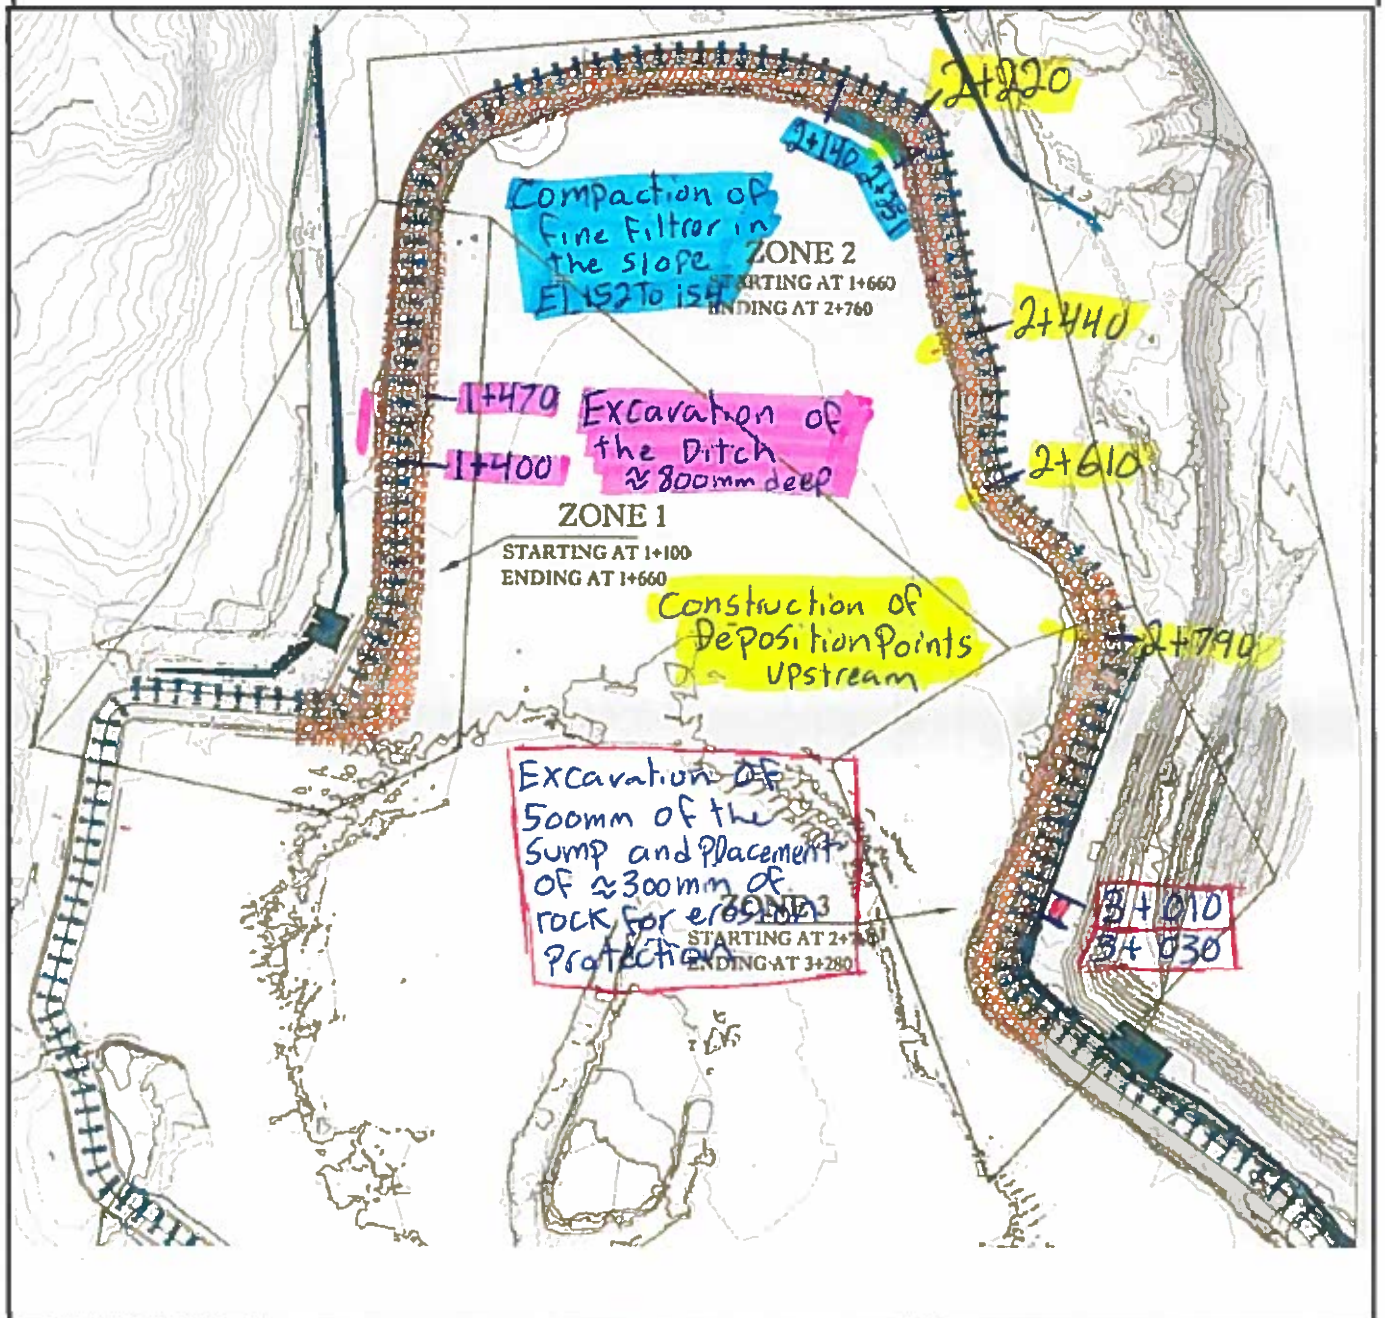 2+220
2+140
Compaction of
fine Filtror in
the Slope
El 152 To
ZONE 2
STARTING AT 1+660
ENDING AT 2+760
2+440
1+470
1+400
Excavation of
the Ditch
≈ 800mm deep
2+610
ZONE 1
STARTING AT 1+100
ENDING AT 1+660
Construction of
Deposition Points
Upstream
2+790
Excavation Of
500mm of the
Sump and Placement
of ≈300mm of
rock for erosion
Protection
ZONE 3
STARTING AT
ENDING AT 3+280
3+010
3+030